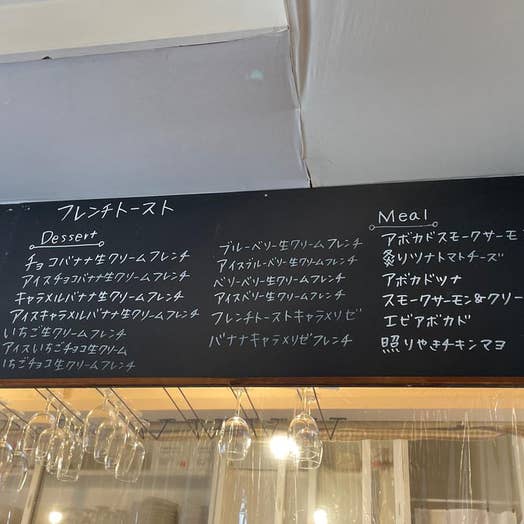 フレンチトースト
Dessert
チョコバナナ生クリームフレンチ
アイスチョコバナナ生クリームフレンチ
キャラメルバナナ生クリームフレンチ
アイスキャラメルバナナ生クリームフレンチ
いちご生クリームフレンチ
アイスいちごチョコ生クリーム
いちごチョコ生クリームフレンチ
ブルーベリー生クリームフレンチ
アイスブルーベリー生クリームフレンチ
ベリーベリー生クリームフレンチ
アイスベリー生クリームフレンチ
フレンチトーストキャラメリゼ
バナナキャラメリゼフレンチ
Meal
アボカドスモークサーモ
炙りツナトマトチーズ
アボカドツナ
スモークサーモン&クリー
エビアボカド
照りやきチキンマヨ